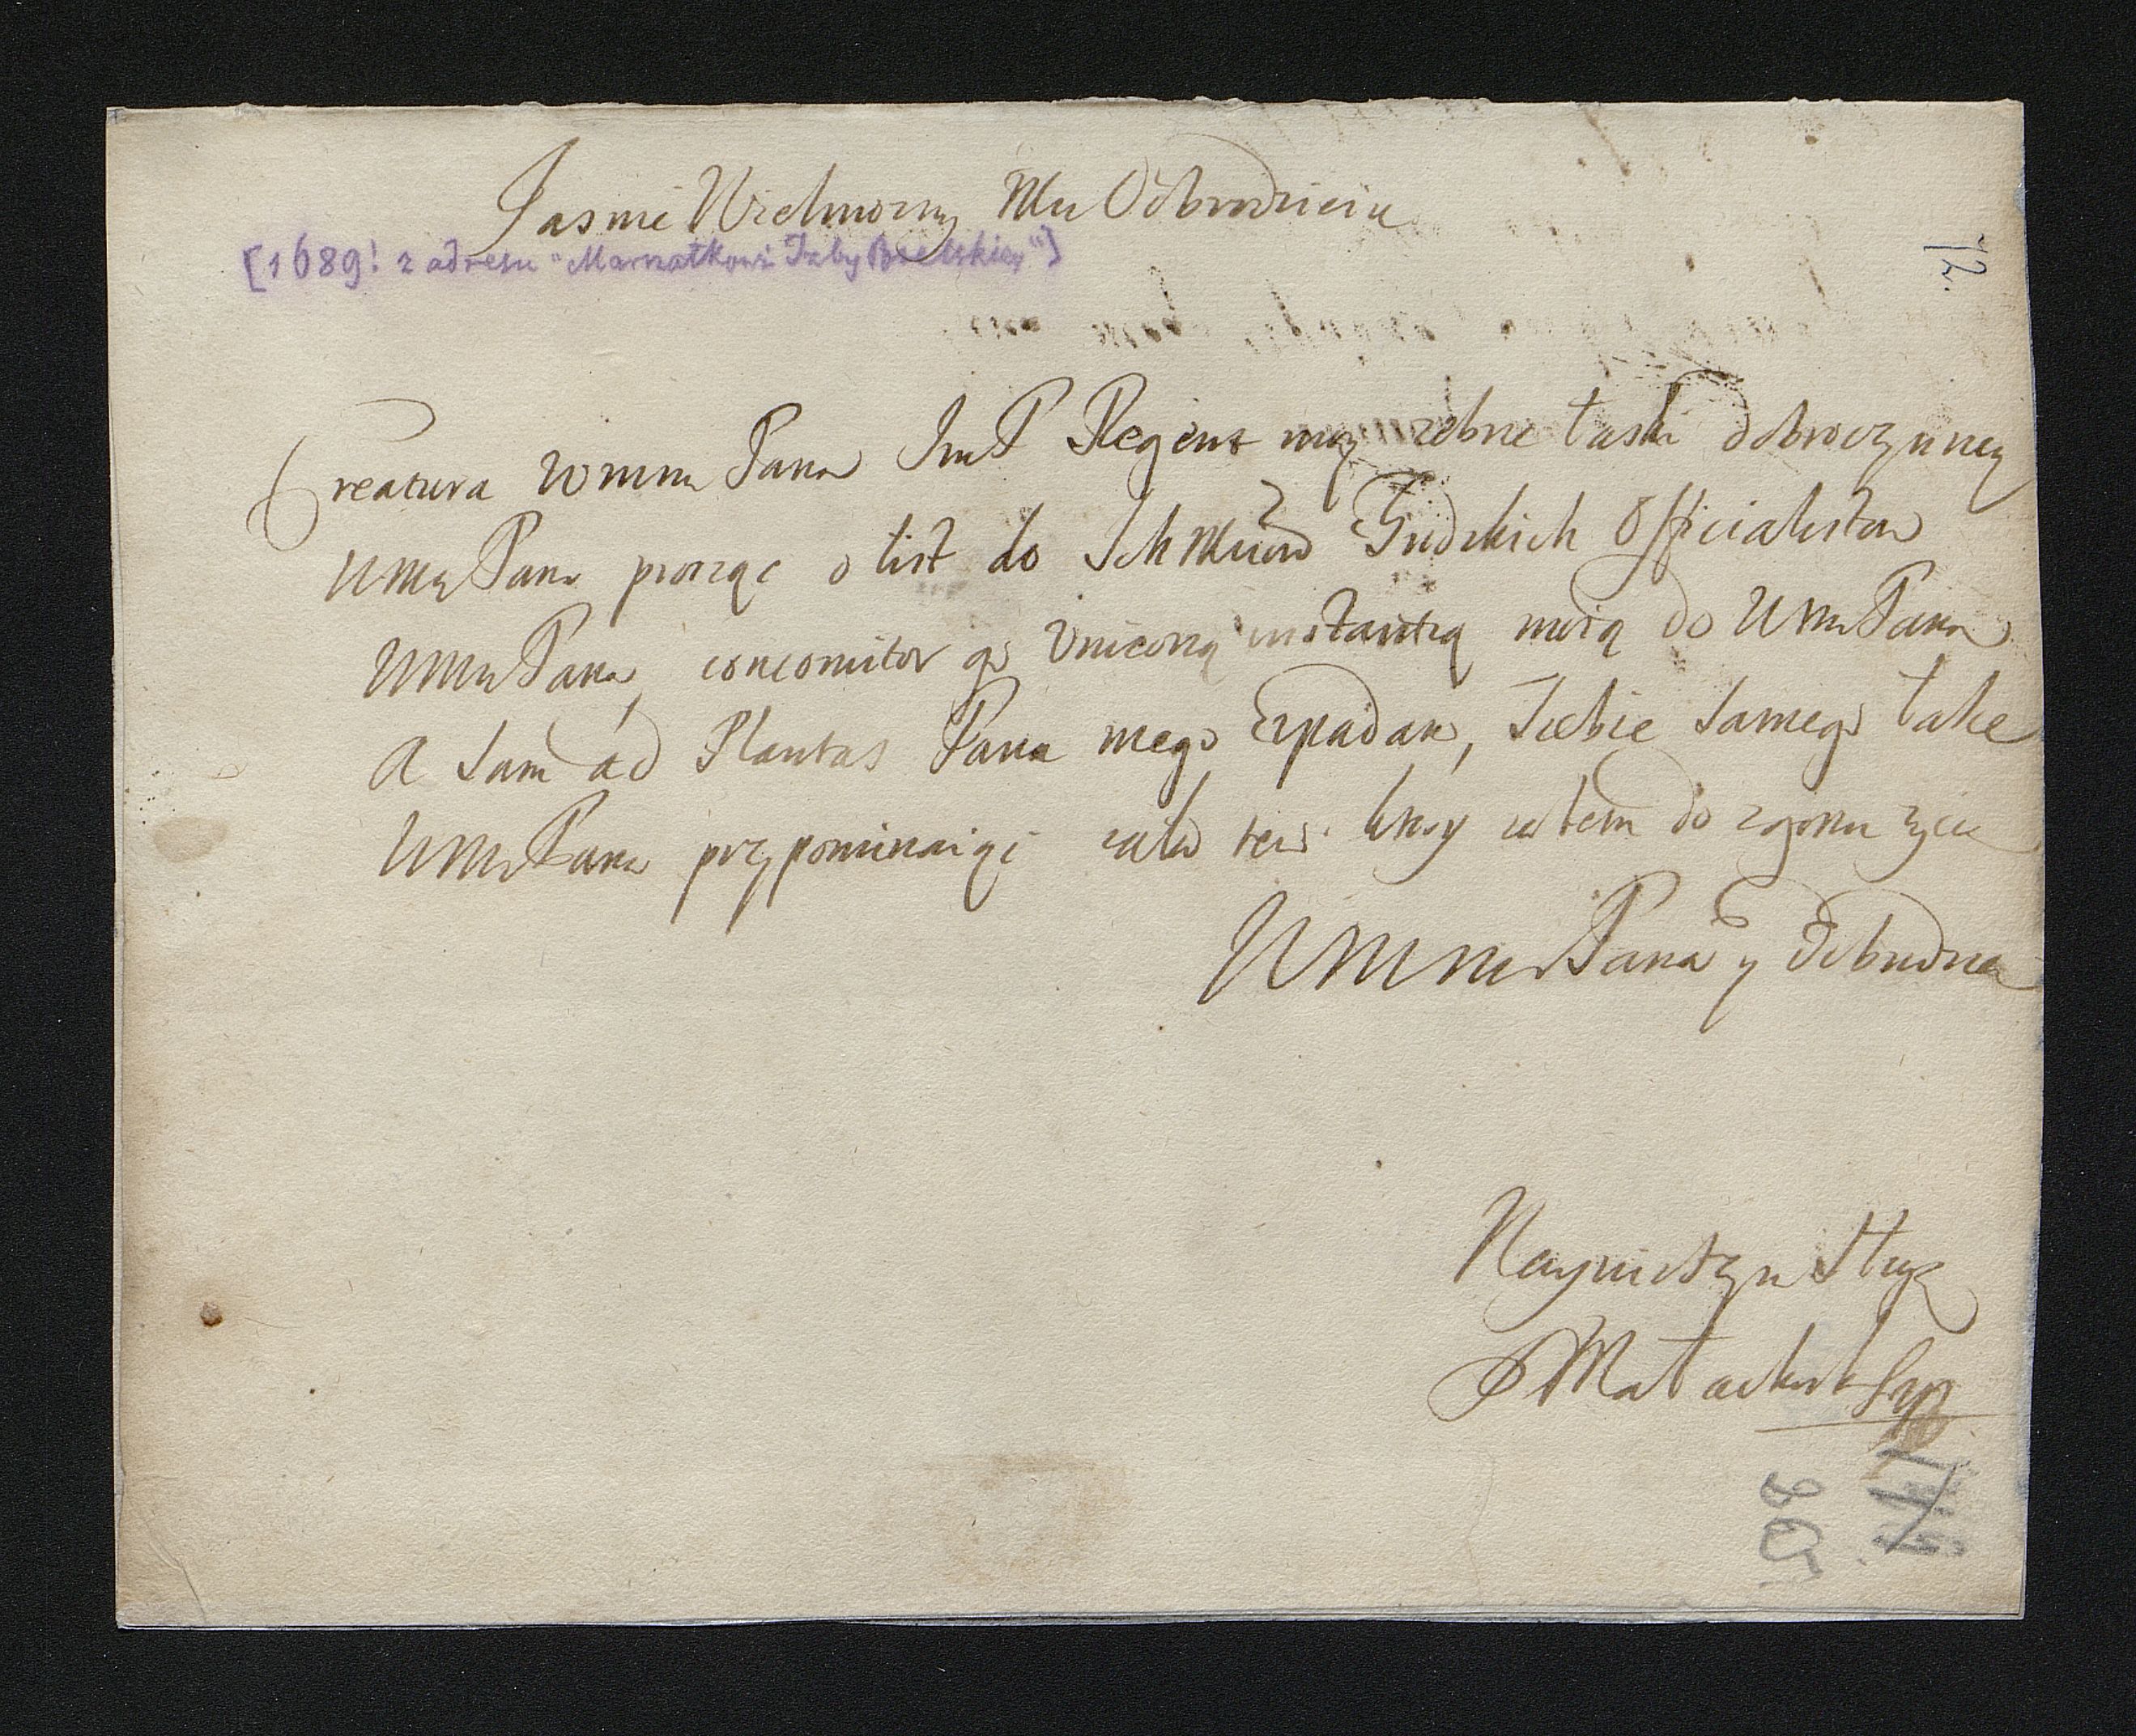 Jasnie Wielmozny Mu Dobrodzieiu
[1689! z adresu "Marszałkowi Izby Poselskiey"]
72.
Creatura WMM Pana ImP Regent moy zebrze łaski dobroczynney
WMM Pana prosząc o list do Ich Mciow Officialistow
WMM Pana, concomitor go Uniżoną instantią moią do WM Pana
A sam ad Plantas Pana mego Upadam, Siebie samego łasce
WMM Pana przypominaiąc do zgonu życia
WMM Pana y Dobrodzieia
Nayniższy Sługa
Małachowski
20